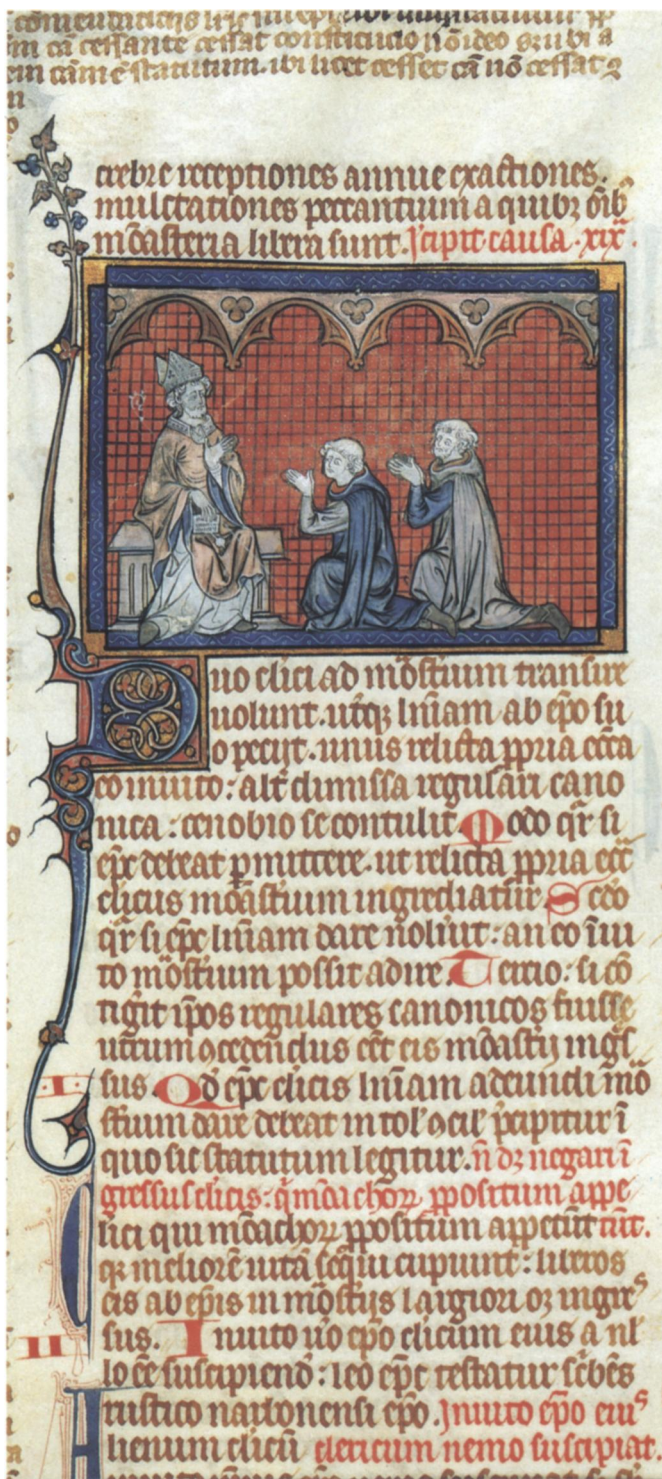 m cā cessante cessat constitucio nō ideo ꝫ ubi a
em cām ē statutum. ibi licet cesset cā nō cessat
crebre receptiones annue exactiones.
mulctationes peccantium a quibꝫ oīb
mōasteria libera sunt. Jcipit causa .xix.
Duo clici ad mōstium transire
uolunt. utqꝫ lniam ab epo su
o peciit. unus relicta ppria ecca
eo inuito: alt dimissa regulari cano
nica: cenobio se contulit. Modo qr si
epc debeat pmittere. ut relicta ppria ecc
clicus mōastium ingrediatur. Scdo
qr si epc lniam dare noluit: an eo īui
to mōstium possit adire. Tercio: si cō
tigit ipos regulares canonicos fuisse
utrum ꝯcedendus eet eis mōastij ings
.I. sus. Qd epc clicis lniam adeundi mō
stium dare debeat in tol ꝯcil pcipitur ī
quo sic statutum legitur. n dꝫ negari ī
gressus clicis: q mōachoꝝ ppositum appe
lici qui mōachoꝝ ppositum appetūt tūt.
qꝫ meliorē uitā sequi cupiunt: liberos
eis ab epis in mōstijs largiori oꝫ ingre
II sus. Inuito uo epo clicum eius a nl
lo ee suscipiend: leo epc testatur scbēs
rustico narbonensi epo. Jnuito epo eiꝰ
Alienum clicū clericum nemo suscipiat